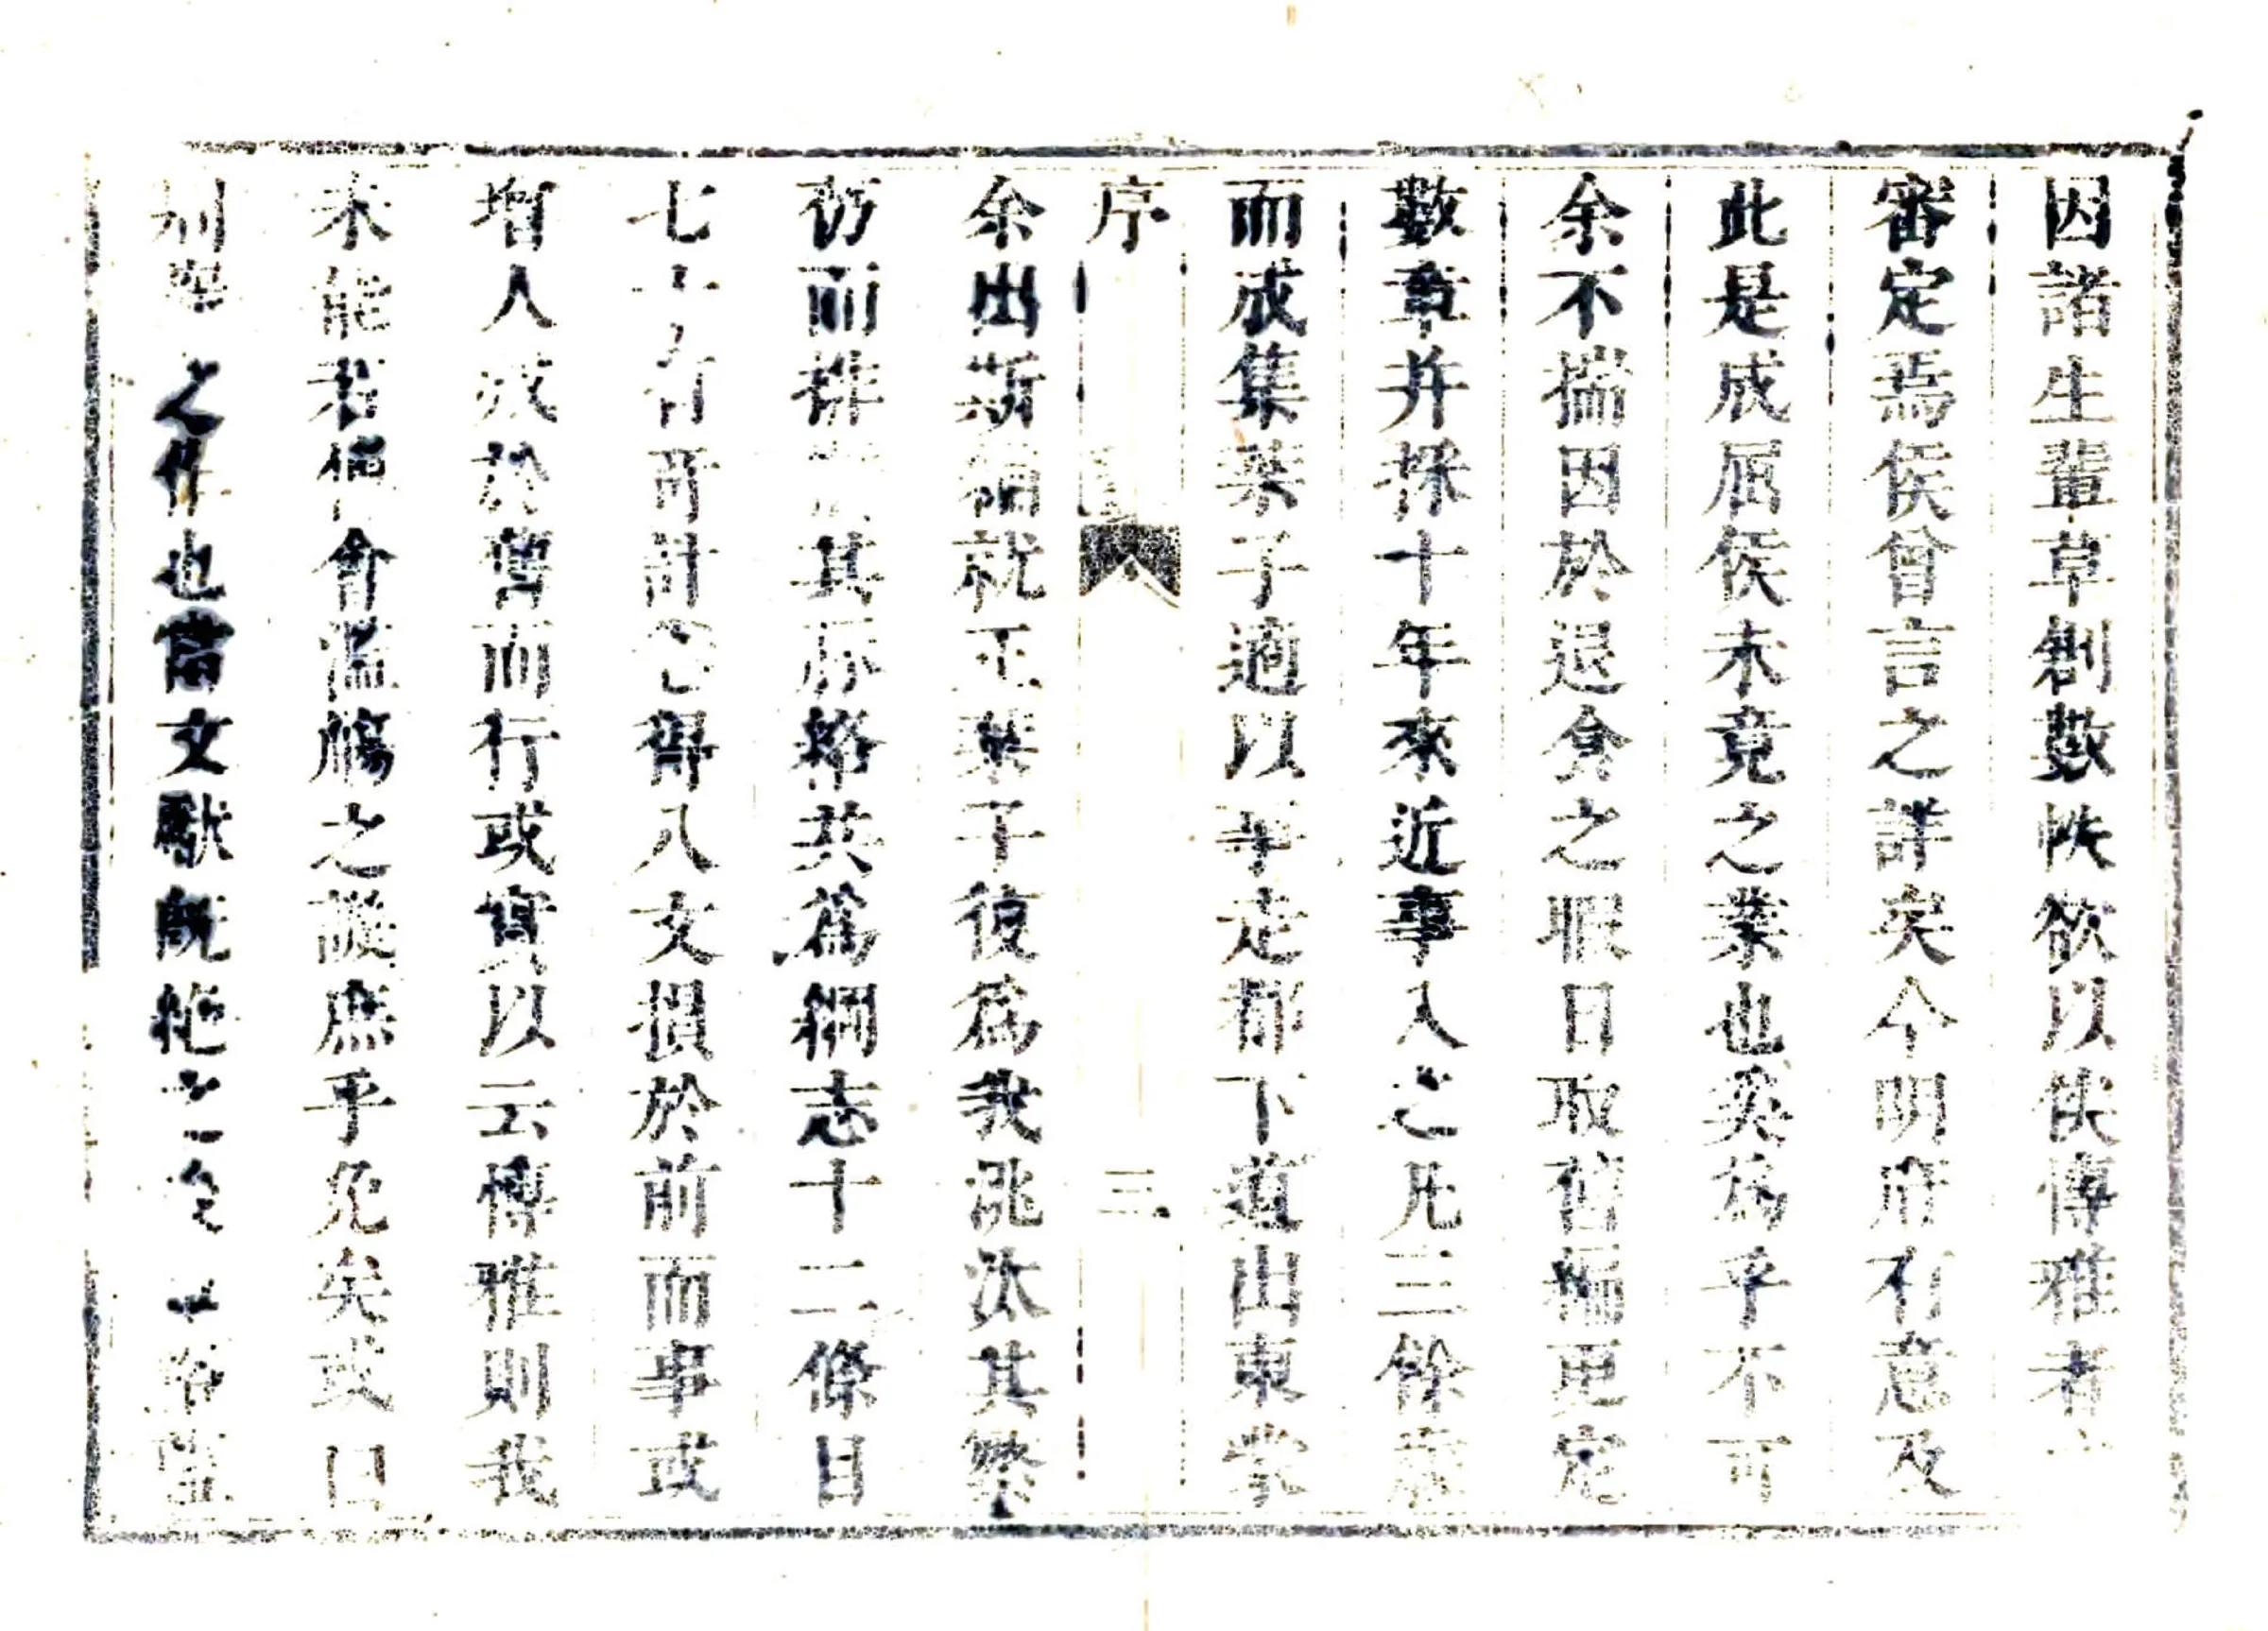 因諸生輩草創數帙欲以俟博雅者
審定焉侯曾言之詳矣今明府有意及
此是成屈侯未竟之業也奚爲乎不可
余不揣因於退食之暇日取舊編更定
數章并採十年來近事入之凡三餘藁
而成集葉子適以事走都下道出東蒙
序
三
余出斯編就正葉子復爲我洮汰其繁
仍而排其脉絡共爲綱志十二條目
七十有奇計已得八文損於前而事或
增人或於舊而行或實以云博雅則我
未能君稱會濫觴之譏庶乎免矣或曰
之作也當文獻既